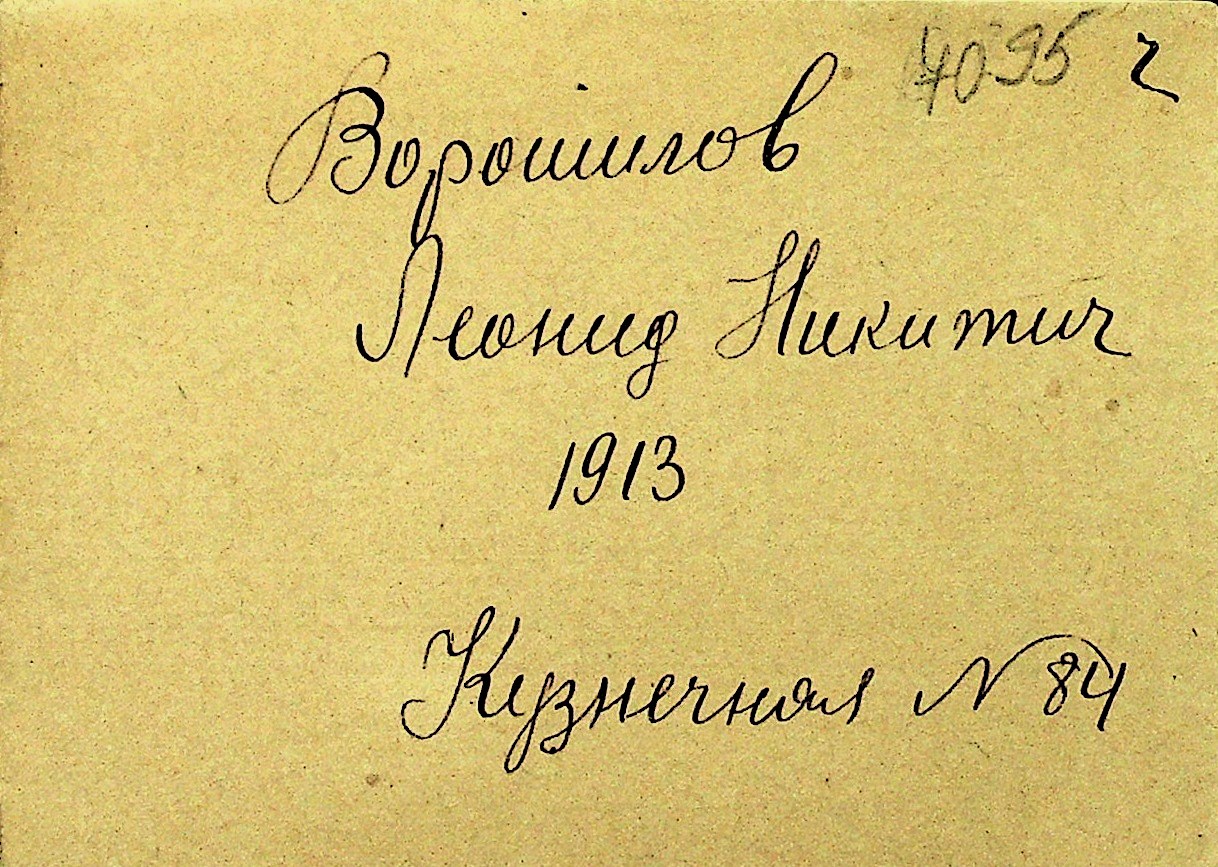 4095 ч
Ворошилов
Леонид Никитич
1913
Кузнечная N 84